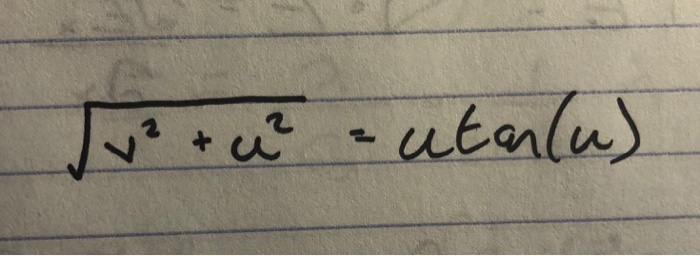 √(v² + u²) = u tan(u)